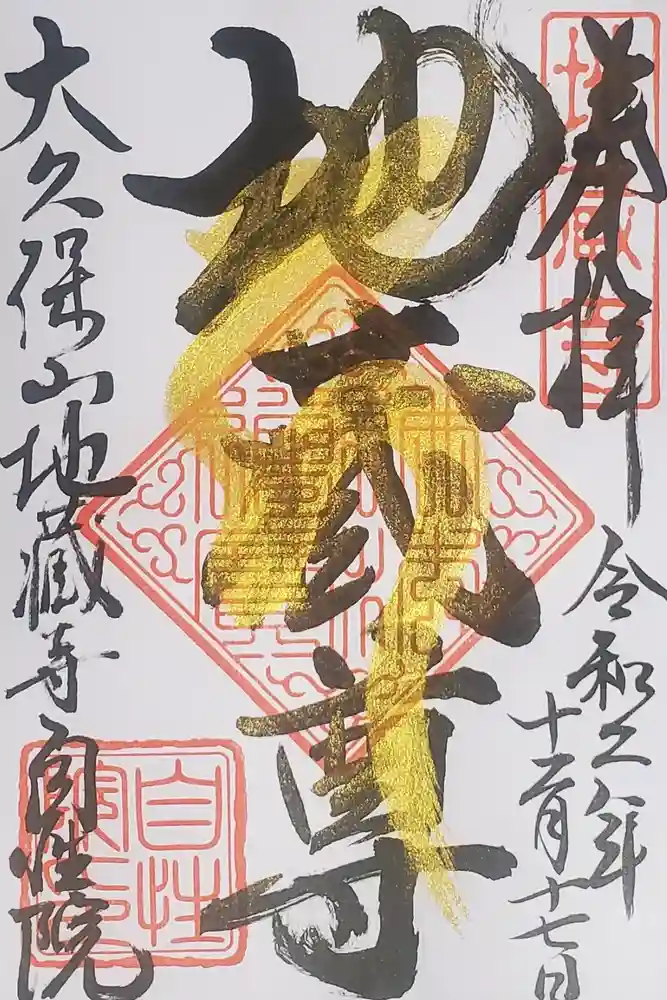 奉拝
令和二年
十二月十七日
地蔵尊
大久保山地蔵寺自性院
地蔵尊
自性